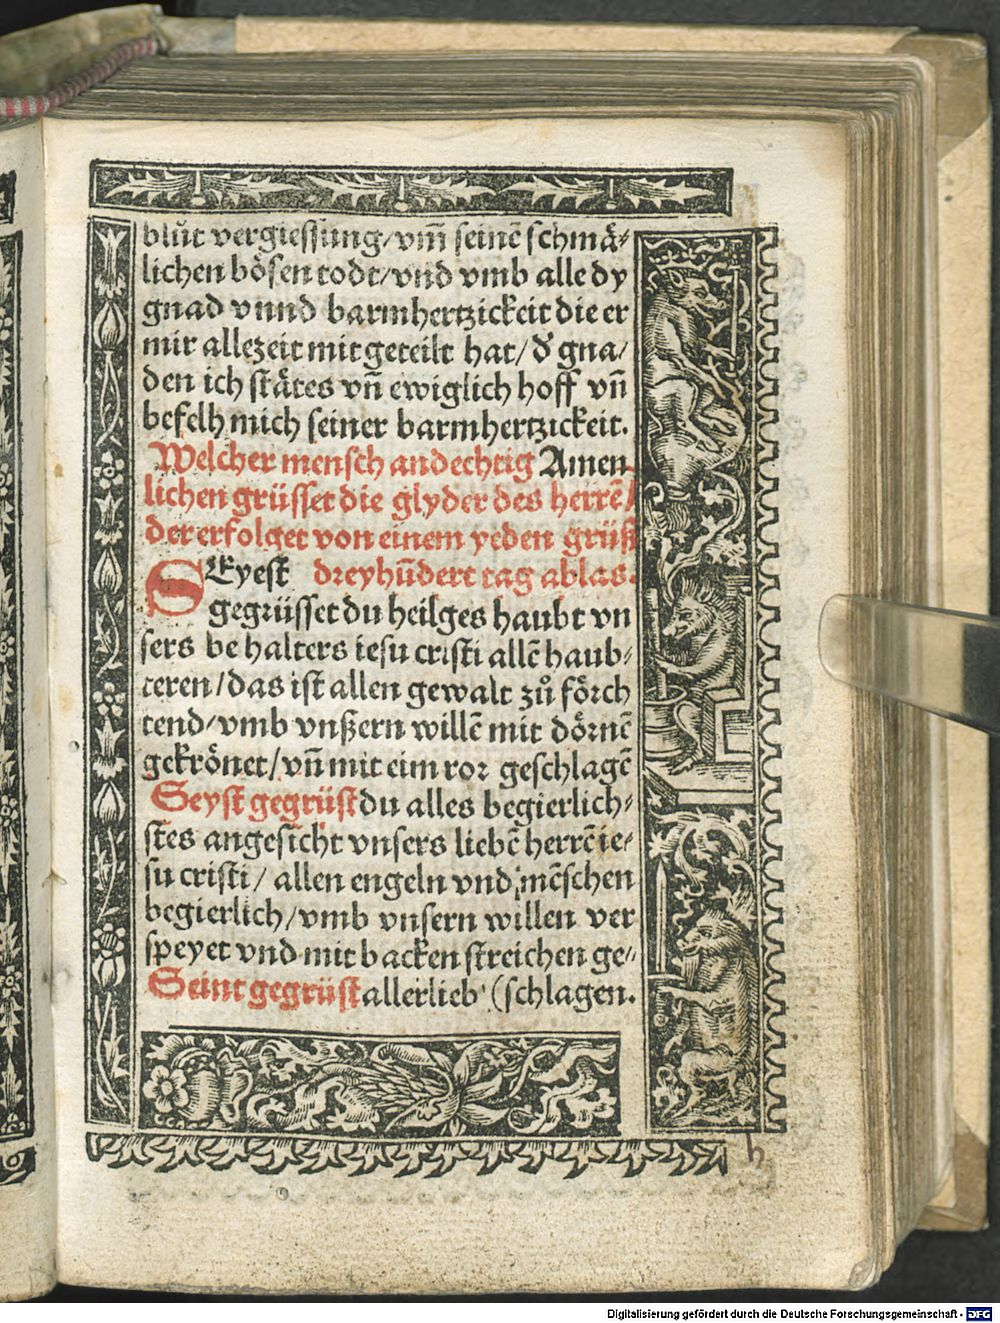 blůt vergiessung/vm̃ seinē schmä⸗
lichen bösen todt/vnd vmb alle dy
gnad vnnd barmhertzickeit die er
mir allezeit mit geteilt hat/ d̛ gna/
den ich stätes vñ ewiglich hoff vñ
befelh mich seiner barmhertzickeit.
Welcher mensch andechtig Amen
lichen grüsset die glyder des herrē/
der erfolget von einem yeden grüß
SEyest dreyhūdert tag ablas.
gegrüsset du heilges haubt vn
sers be halters iesu cristi allē haub⸗
teren/das ist allen gewalt zů förch
tend/vmb vnßern willē mit dörnē
gekrönet/vñ mit eim ror geschlagē
Seyst gegrüst du alles begierlich⸗
stes angesicht vnsers liebē herrē ie⸗
su cristi/ allen engeln vnd mēschen
begierlich/vmb vnsern willen ver
speyet vnd mit backen streichen ge⸗
Seint gegrüst allerlieb' (schlagen.
h
Digitalisierung gefördert durch die Deutsche Forschungsgemeinschaft - DFG